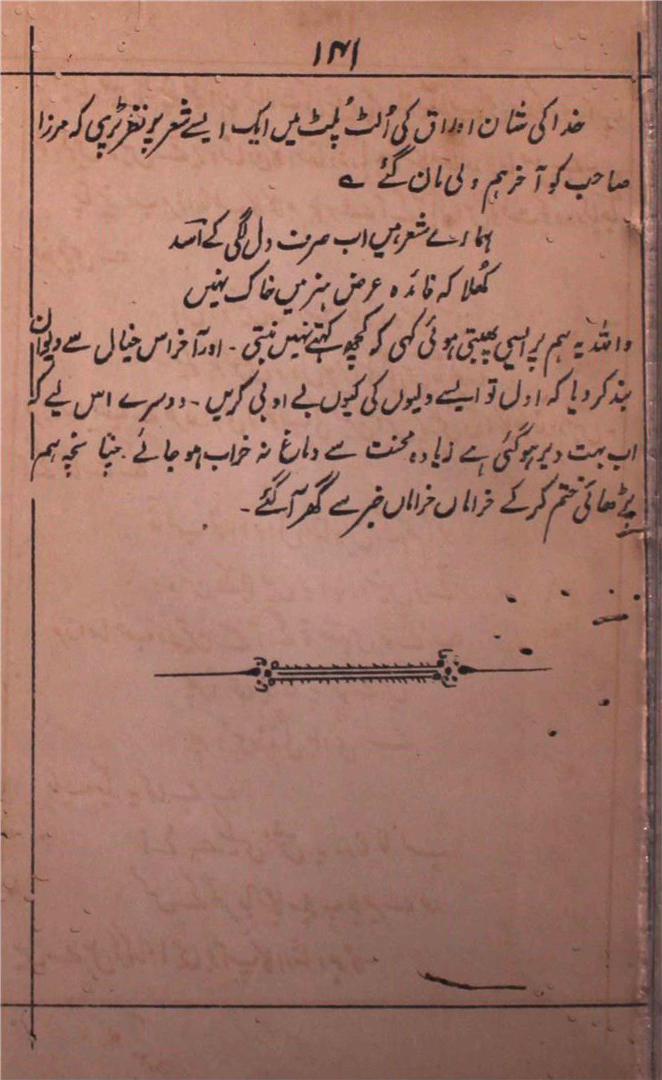 ۱۴۱
خدا کی شان اوراق کی اُلٹ پُلٹ میں ایک ایسے شعر پر نظر پڑی کہ مرزا
صاحب کو آخر ہم ولی مان گئے ؎
ہمارے شعر ہیں اب صرف دل لگی کے اسد
کھُلا کہ فائدہ عرض ہنر میں خاک نہیں
واللہ یہ ہم پر ایسی پھبتی ہوئی کہی کہ کچھ کہتے نہیں بنتی ۔ اور آخر اس خیال سے دیوان
بند کر دیا کہ اول تو ایسے ولیوں کی کیوں بے ادبی کریں ۔ دوسرے اس لیے کہ
اب بہت دیر ہو گئی ہے زیادہ محنت سے دماغ نہ خراب ہو جائے ۔ چنانچہ ہم
پڑھائی ختم کر کے خراماں خراماں خیر سے گھر آ گئے ۔